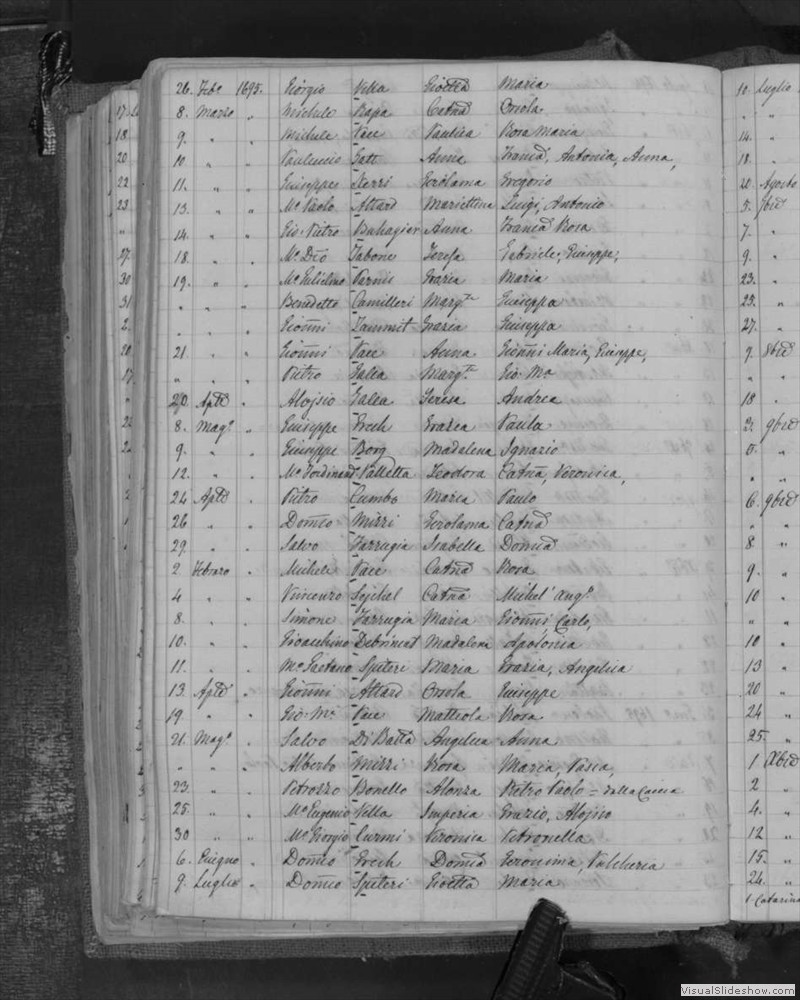 26. Feb. 1695. Giorgio Vella Gioetta Maria
8. Marzo " Michele Rapa Catnā Orsola
9. " " Michele Pace Paulica Rosa Maria
10. " " Pauluccio Gatt Anna Francā, Antonia, Anna,
11. " " Giuseppe Xerri Gerolama Gregorio
13. " " Mo Paolo Attard Mariettina Luigi, Antonio
14. " " Gio: Pietro Buhagier Anna Francā Rosa
18. " " Mo Dco Tabone Teresa Gabriele, Giuseppe,
19. " " Parnis Grazia Maria
" " " Benedetto Camilleri Margta Giuseppa
" " " Gionni Zammit Grazia Giuseppa
21. " " Gionni Pace Anna Gionni Maria, Giuseppe,
" " " Pietro Galea Margta Gio: Ma
20. Aple " Alojsio Galea Teresa Andrea
8. Mago " Giuseppe Grech Grazia Paula
9. " " Giuseppe Borg Madalena Ignazio
12. " " Mo Ferdinando Valletta Teodora Catnā, Veronica,
24 Aple " Pietro Cumbo Maria Paulo
26 " " Domco Mizzi Gerolama Catnā
29. " " Salvo Farrugia Isabella Domcā
2. Febraro " Micheli Pace Catnā Rosa
4 " " Vincenzo Sejchel Catnā Michel' Ango
8. " " Simone Farrugia Maria Gionni Carlo,
10. " " Gioacchino Debrincat Madalena Apolonia
11. " " Mo Gaetano Spiteri Maria Grazia, Angelica
13. Aple " Gionni Attard Orsola Giuseppe
19. " " Gio: Ma Pace Matteola Rosa
21. Mago " Salvo Di Batta Angelica Anna
" " " Alberto Mizzi Rosa Maria,
23. " " Petrozzo Bonello Alonza Pietro Paolo = dalla
25. " " Mo Eugenio Vella Imperia Grazio, Alojsio
30 " " Mo Giorgio Curmi Veronica Petronella
6. Giugno " Domco Grech Domcā Geronima, Pulcheria
9. Luglio " Domco Spiteri Gioetta Maria
17.
18.
20
22
23.
"
27.
30
31
2.
20
17
10. Luglio
" "
14. "
18. "
20. Agosto
5. 7bre
7. "
9. "
23. "
25. "
27. "
9. 8bre
" "
18 "
3. 9bre
" "
6. 9bre
" "
8 "
9. "
10 "
" "
10 "
13 "
20 "
24 "
25. "
1 Xbre
2 "
4. "
12 "
15. "
24. "
Catarina
VisualSlideshow.com